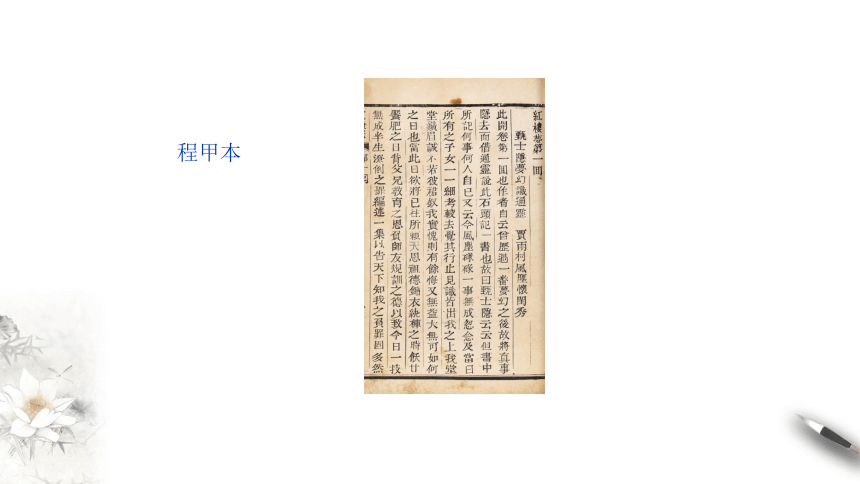 程甲本
紅樓夢第一回
甄士隱夢幻識通靈 賈雨村風塵懷閨秀
此開卷第一回也作者自云曾歷過一番夢幻之後故將真事
隱去而借通靈說此石頭記一書也故曰甄士隱云云但書中
所記何事何人自己又云今風塵碌碌一事無成忽念及當日
所有之女子一一細考較去覺其行止見識皆出我之上我堂
堂鬚眉誠不若彼裙釵我實愧則有餘悔又無益大無可如何
之日也當此日欲將已往所賴天恩祖德錦衣紈褲之時飫甘
饜肥之日背父兄教育之恩負師友規訓之德以致今日一技
無成半生潦倒之罪編述一集以告天下知我之負罪固多然